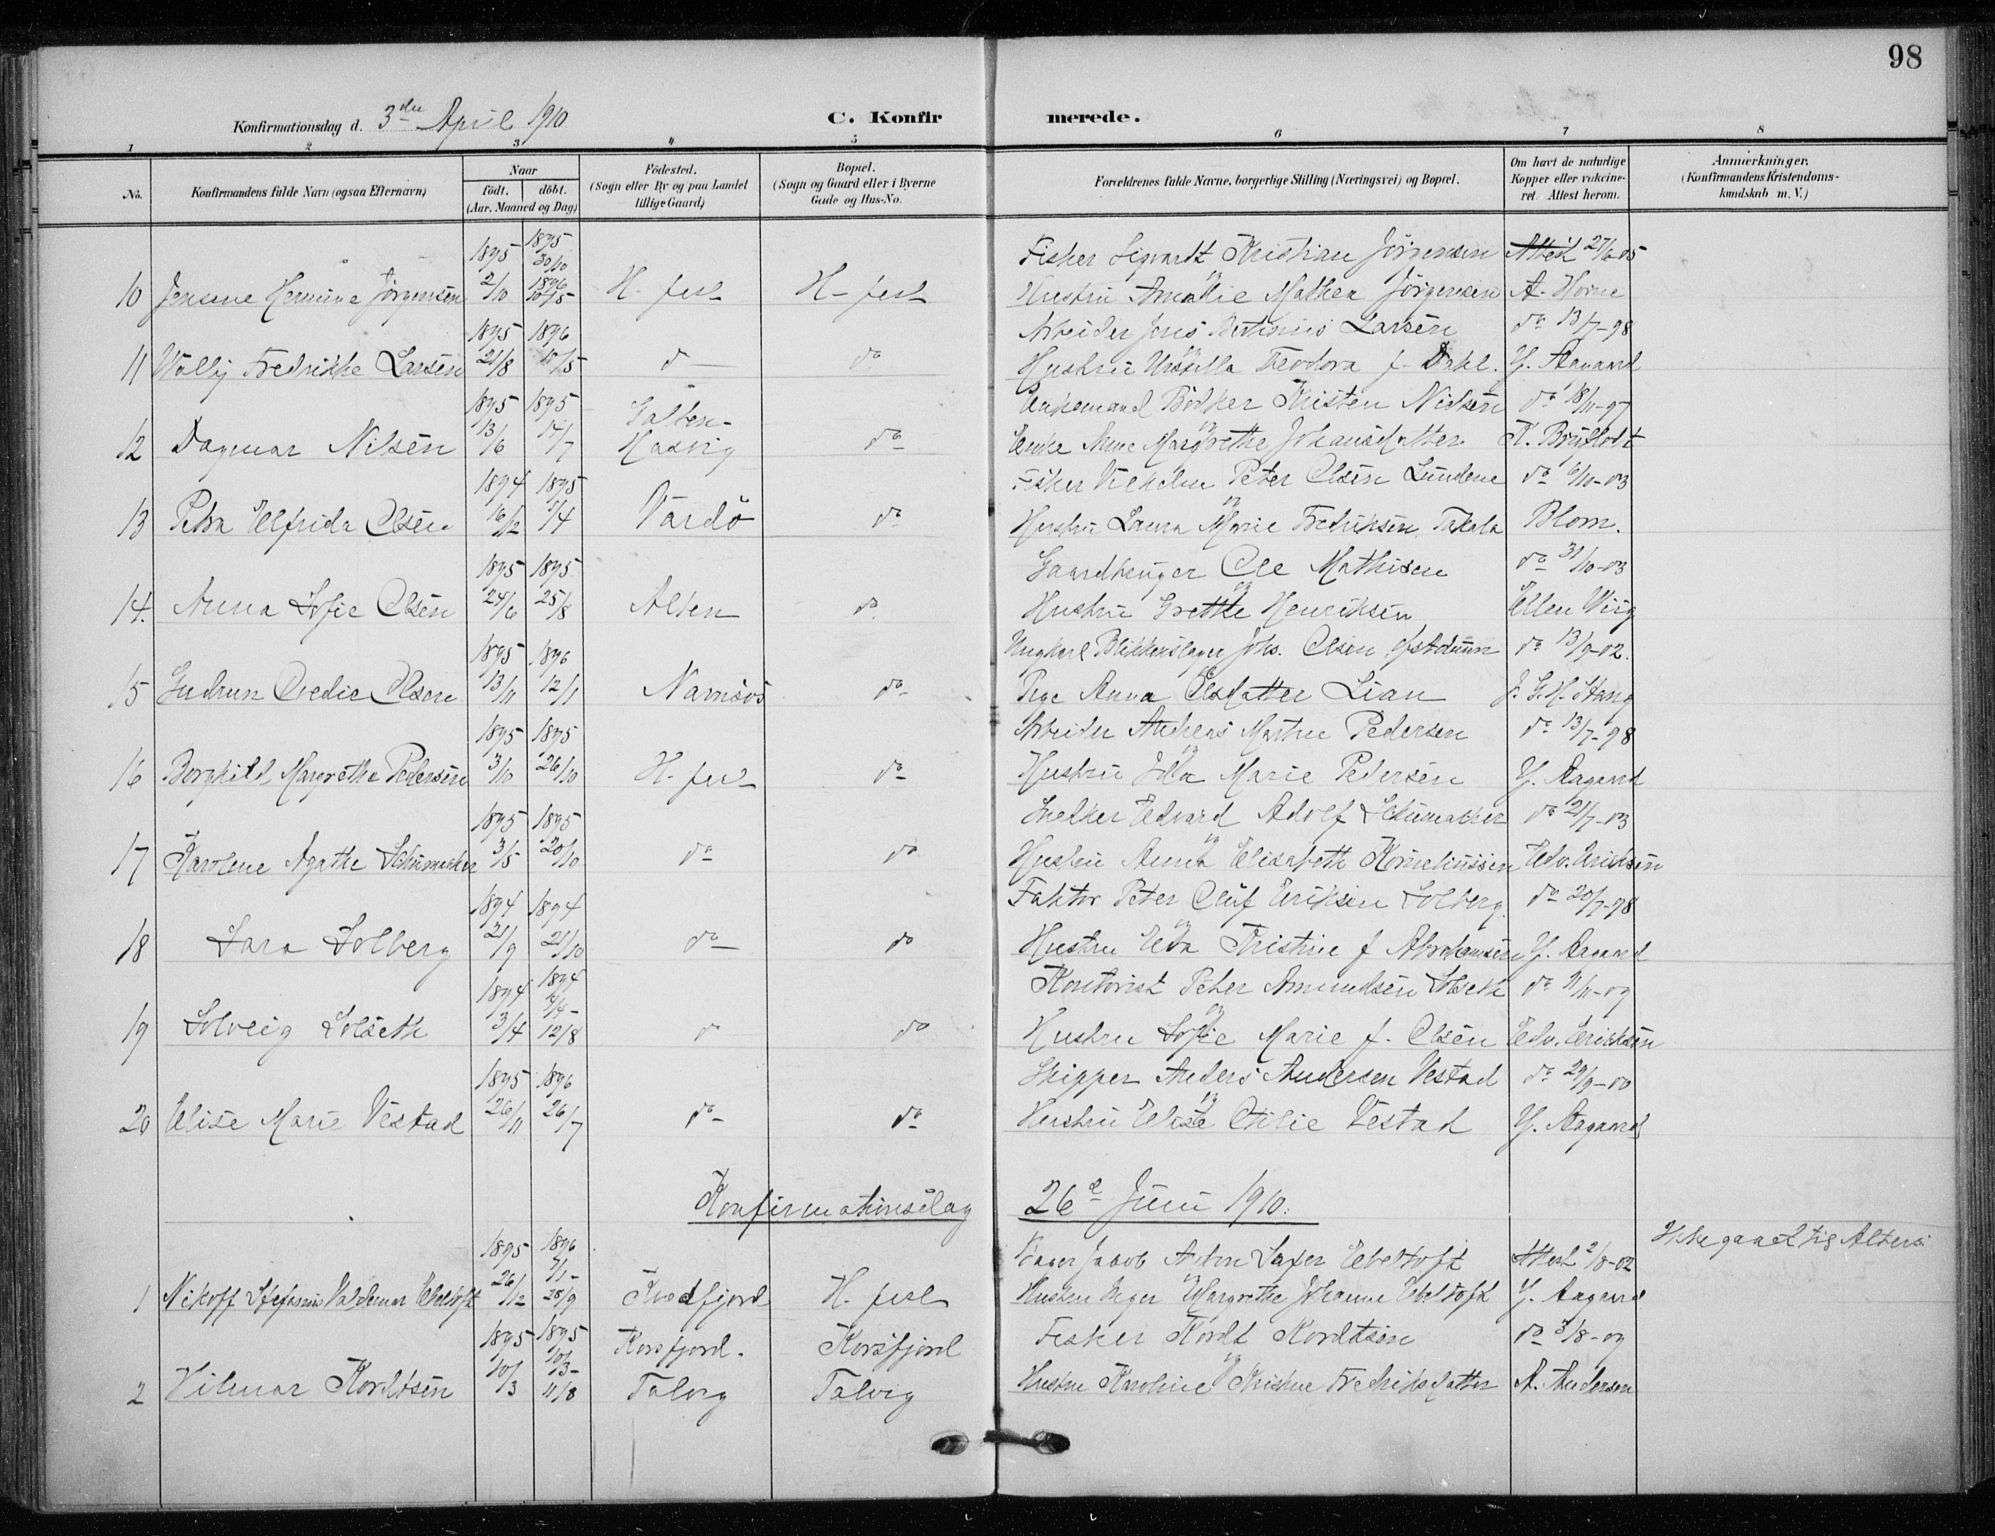 98
Konfirmationsdag d. 3die April 1910
C. Konfir merede.
1 2 3 4 5 6 7 8
No.
Konfirmandens fulde Navn (ogsaa Efternavn)
Naar
født. døbt.
(Aar, Maaned og Dag)
Fødested.
(Sogn eller By og paa Landet
tillige Gaard)
Bopæl.
(Sogn og Gaard eller i Byerne
Gade og Hus-No.
Forældrenes fulde Navne, borgerlige Stilling (Næringsvei) og Bopæl.
Om havt de naturlige
Kopper eller vakcine-
ret. Attest herom.
Anmærkninger.
(Konfirmandens Kristendoms-
kundskab m. V.)
1895 1895 30/10 Fisker Sigvardt Kristian Jørgensen Attest 27/6-05
10 Jensine Hermine Jørgensen 2/10 1896 10/5 H. fest H- fest Hustru Amalie Mathea Jørgensen A. Horne
1895 1896 Arbeider Jens Larsen do 13/7-98
11 Wally Fredrikke Larsen 21/8 10/5 d- do Hustru Teodora f. Dahl. Y. Aagaard
1895 1895 Galten- Enkemand Bødker Kristen Nielsen do 18/11-97
12 Dagmar Nilsen 13/6 14/7 Hasvig do Enke Anne Margrethe Johansdatter K.
1894 1895 Fisker Vilhelm Peter Olsen Lundene do 6/10-03
13 Petra Elfrida Olsen 16/12 /4 Vardø do Hustru Laura Marie Fredriksen Takala Blom.
1895 1895 Gaardbruger Ole Mathisen do 31/10-03
14. Anna Sofie Olsen 24/6 25/8 Alten do Hustru Grethe Henriksen Ellen Wiig
1895 1896 Ungkarl Blikkenslager Johs. Olsen do 13/9-02.
15 Gudrun Olsen 13/11 12/1 Namsos do Pige Anna Olsdatter Lian J. G. H. Stang
1895 1895 Arbeider Andreas Martin Pedersen do 13/7-98
16 Borghild Margrethe Pedersen 3/10 26/10 H. fest do Hustru Ida Marie Pedersen Y. Aagaard
1895 1895 Snedker Edvard Adolf Schumacher do 21/7-03
17 Karolene Agathe Schumacher 3/5 20/10 do do Hustru Anna Elisabeth Korneliussen Edv. Eriksen
1894 1894 Faktor Peter Oluf Eriksen Solberg. do 20/7-98
18 Sara Solberg 21/9 21/10 do do Hustru Eda Kristine f Abrahamsen Y. Aagaard
1894 1894 Kontorist Peter Amundsen Solseth do 11/11-09
19 Solveig Solseth 3/4 12/8 do do Hustru Sofie Marie f. Olsen Edv. Eriksen
1895 1896 Skipper Anders Andersen Vestad do 29/9-00
20 Elise Marie Vestad 26/11 26/7 do do Hustru Elise Otilie Vestad Y. Aagaard
Konfirmationsdag 26de Juni 1910.
1895 1896 Jakob Anton Ebeltoft Attest 2/8-02 Ikke gaaet til Alters
1 Stefanus Valdemar Ebeltoft 26/12 28/9 Kvædfjord H. fest Hustru Inger Margrethe Johanne Ebeltoft Y. Aagaard
1895 1895 Korsfjord. Korsfjord Fisker Kordt Kordtsen do 3/8-09
2 Hilmar Kordtsen 10/3 10/3- 11/8 Talvig Talvig Hustru Karoline Kristine Fredriksdatter A. Andersen